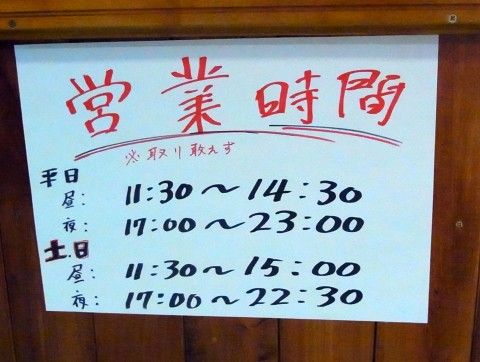 営業時間
※取り敢えず
平日
昼: 11:30～14:30
夜: 17:00～23:00
土.日
昼: 11:30～15:00
夜: 17:00～22:30